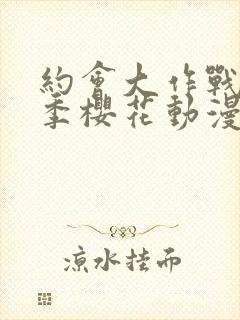 約會大作戰
季櫻花動漫
涼水挂而